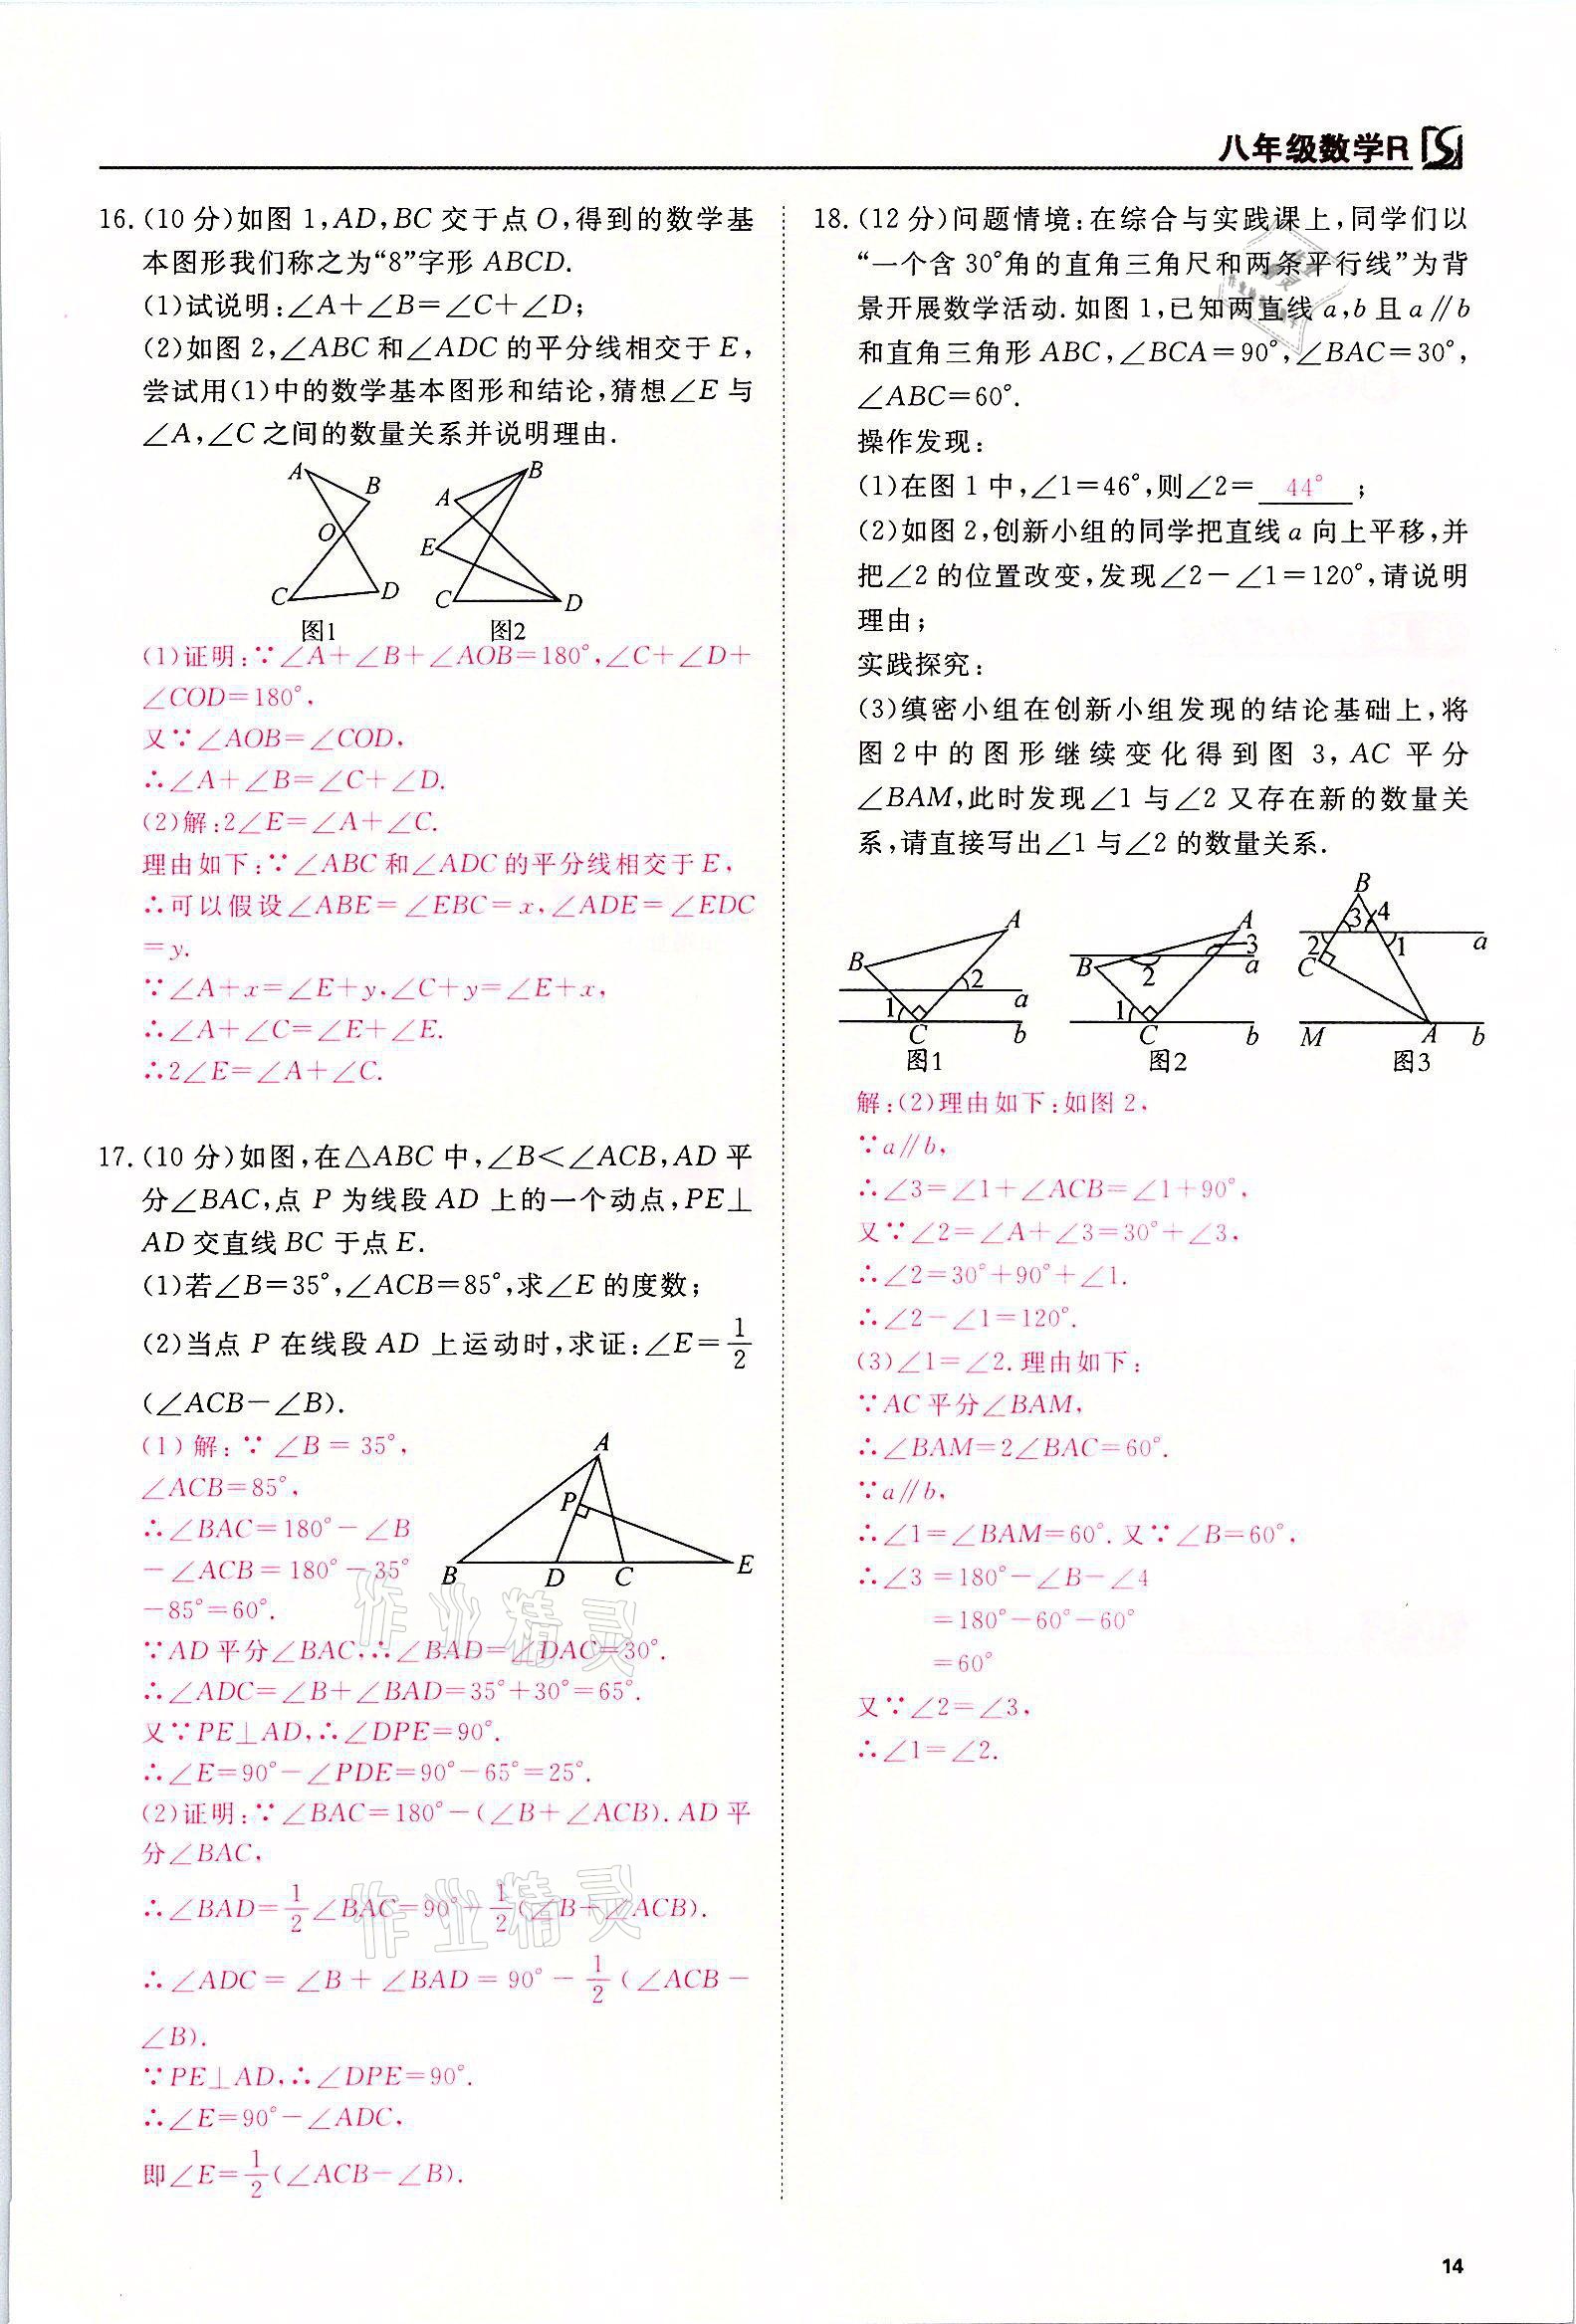 八年级数学R
16.(10分)如图1,AD,BC交于点O,得到的数学基
本图形我们称之为“8”字形ABCD.
(1)试说明:∠A+∠B=∠C+∠D;
(2)如图2,∠ABC和∠ADC的平分线相交于E,
尝试用(1)中的数学基本图形和结论,猜想∠E与
∠A,∠C之间的数量关系并说明理由.
A
B
O
C
D
图1
B
A
E
C
D
图2
(1)证明:∵∠A+∠B+∠AOB=180°,∠C+∠D+
∠COD=180°,
又∵∠AOB=∠COD,
∴∠A+∠B=∠C+∠D.
(2)解:2∠E=∠A+∠C.
理由如下:∵∠ABC和∠ADC的平分线相交于E,
∴可以假设∠ABE=∠EBC=x,∠ADE=∠EDC
=y.
∵∠A+x=∠E+y,∠C+y=∠E+x,
∴∠A+∠C=∠E+∠E.
∴2∠E=∠A+∠C.
17.(10分)如图,在△ABC中,∠B<∠ACB,AD平
分∠BAC,点P为线段AD上的一个动点,PE⊥
AD交直线BC于点E.
(1)若∠B=35°,∠ACB=85°,求∠E的度数;
(2)当点P在线段AD上运动时,求证:∠E=1/2
(∠ACB-∠B).
A
P
B
D
C
E
(1)解:∵∠B=35°,
∠ACB=85°,
∴∠BAC=180°-∠B
-∠ACB=180°-35°
-85°=60°.
∵AD平分∠BAC,∴∠BAD=∠DAC=30°.
∴∠ADC=∠B+∠BAD=35°+30°=65°.
又∵PE⊥AD,∴∠DPE=90°.
∴∠E=90°-∠PDE=90°-65°=25°.
(2)证明:∵∠BAC=180°-(∠B+∠ACB).AD平
分∠BAC,
∴∠BAD=1/2∠BAC=90°-1/2(∠B+∠ACB).
∴∠ADC=∠B+∠BAD=90°-1/2(∠ACB-
∠B).
∵PE⊥AD,∴∠DPE=90°.
∴∠E=90°-∠ADC,
即∠E=1/2(∠ACB-∠B).
作业精灵
作业精灵
18.(12分)问题情境:在综合与实践课上,同学们以
“一个含30°角的直角三角尺和两条平行线”为背
景开展数学活动.如图1,已知两直线a,b且a∥b
和直角三角形ABC,∠BCA=90°,∠BAC=30°,
∠ABC=60°.
操作发现:
(1)在图1中,∠1=46°,则∠2= 44° ;
(2)如图2,创新小组的同学把直线a向上平移,并
把∠2的位置改变,发现∠2-∠1=120°,请说明
理由;
实践探究:
(3)缜密小组在创新小组发现的结论基础上,将
图2中的图形继续变化得到图3,AC平分
∠BAM,此时发现∠1与∠2又存在新的数量关
系,请直接写出∠1与∠2的数量关系.
A
B
2
a
1
C
b
图1
A
3
B
2
a
1
C
b
图2
B
3
4
2
1
a
C
M
A
b
图3
解:(2)理由如下:如图2,
∵a∥b,
∴∠3=∠1+∠ACB=∠1+90°,
又∵∠2=∠A+∠3=30°+∠3,
∴∠2=30°+90°+∠1.
∴∠2-∠1=120°.
(3)∠1=∠2.理由如下:
∵AC平分∠BAM,
∴∠BAM=2∠BAC=60°.
∵a∥b,
∴∠1=∠BAM=60°.又∵∠B=60°,
∴∠3=180°-∠B-∠4
=180°-60°-60°
=60°
又∵∠2=∠3,
∴∠1=∠2.
14